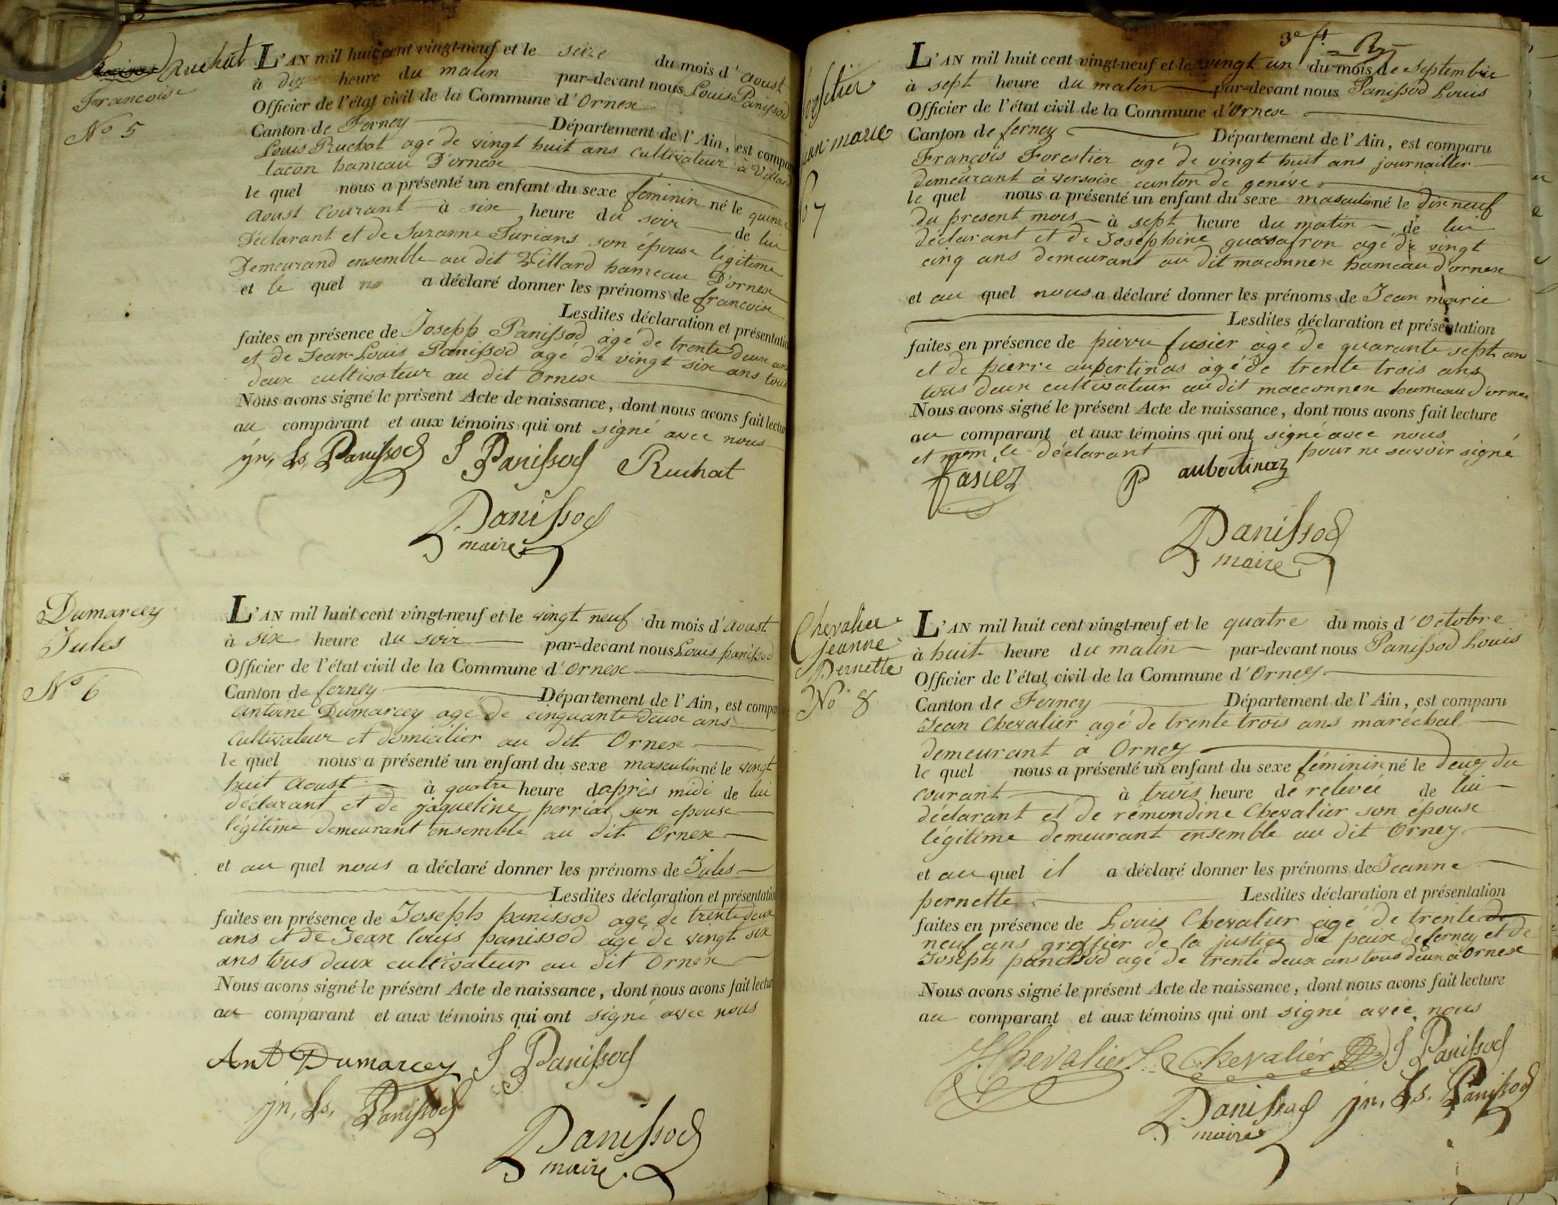 Ruchat
Francoise
No 5
L'AN mil huit cent vingt-neuf et le seize du mois d'Aoust
à dix heure du matin par-devant nous Louis Panissod
Officier de l'état civil de la Commune d'Ornex
Canton de Ferney Département de l'Ain, est compa
Louis Ruchat age de vingt huit ans Cultivateur à Villard
Tacon hameau D'ornex
le quel nous a présenté un enfant du sexe féminin né le quinze
Aoust Courant à six heure du soir de lui
Déclarant et de Suzanne Jurians son épouse légitime
Demeurand ensemble au dit Villard hameau D'ornex
et le quel a déclaré donner les prénoms de francoise
Lesdites déclaration et présentatio
faites en présence de Joseph Panissod âge de trente deux ans
et de Jean Louis Panissod agé de vingt six ans tous
deux cultivateur au dit Ornex
Nous avons signé le présent Acte de naissance, dont nous avons fait lectu
au comparant et aux témoins qui ont signé avec nous
jn. Ls. Panissod J Panissod Ruchat
Panissod
maire
Dumarcey
Jules
No 6
L'AN mil huit cent vingt-neuf et le vingt neuf du mois d'Aoust
à six heure du soir par-devant nous Louis panissod
Officier de l'état civil de la Commune d'Ornex
Canton de ferney Département de l'Ain, est compa
Antoine Dumarcey age de cinquante deux ans
Cultivateur et domicilier au dit Ornex
le quel nous a présenté un enfant du sexe masculin né le vingt
huit Aoust à quatre heure d'après midi de lui
déclarant et de jaqueline perrial son epouse
légitime demeurant ensemble au dit Ornex
et au quel nous a déclaré donner les prénoms de Jules
Lesdites déclaration et présentatio
faites en présence de Joseph panissod age de trente deux
ans et de Jean louis panissod age de vingt six
ans tous deux cultivateur au dit Ornex
Nous avons signé le présent Acte de naissance, dont nous avons fait lectu
au comparant et aux témoins qui ont signé avec nous
Ant Dumarcey J Panissod
jn. Ls. Panissod
Panissod
maire
3e ft.
jean marie
7
L'AN mil huit cent vingt-neuf et le vingt un du mois de septembre
à sept heure du matin par-devant nous Panissod Louis
Officier de l'état civil de la Commune d'Ornex
Canton de ferney Département de l'Ain, est comparu
François Forestier age de vingt huit ans journailler
demeurant à versoix canton de genéve
le quel nous a présenté un enfant du sexe masculin né le dix neuf
du present mois à sept heure du matin de lui
déclarant et de Josephine age de vingt
cinq ans demeurant au dit maconnex hameau d'ornex
et au quel nous a déclaré donner les prénoms de Jean marie
Lesdites déclaration et présentation
faites en présence de pierre fusier agé de quarante sept ans
et de pierre aubertinas âgé de trente trois ans
tous deux cultivateur au dit maconnex hameau d'ornex
Nous avons signé le présent Acte de naissance, dont nous avons fait lecture
au comparant et aux témoins qui ont signé avec nous
et non le déclarant pour ne savoir signé
P aubertinaz
Panissod
maire
Chevalier
Jeanne
Pernette
No 8
L'AN mil huit cent vingt-neuf et le quatre du mois d'Octobre
à huit heure du matin par-devant nous Panissod Louis
Officier de l'état civil de la Commune d'Orney
Canton de Ferney Département de l'Ain, est comparu
Jean Chevalier agé de trente trois ans maréchal
demeurant à Orney
le quel nous a présenté un enfant du sexe féminin né le deux du
courant à trois heure de relevée de lui
déclarant et de rémondine Chevalier son epouse
légitime demeurant ensemble au dit Orney
et au quel il a déclaré donner les prénoms de Jeanne
pernette Lesdites déclaration et présentation
faites en présence de Louis Chevalier agé de trente
neuf ans greffier de la justice de paix de ferney et de
Joseph panissod agé de trente deux ans tous deux à Ornex
Nous avons signé le présent Acte de naissance, dont nous avons fait lecture
au comparant et aux témoins qui ont signé avec nous
J. Chevalier L. Chevalier J Panissod
Panissod jn. Ls. Panissod
maire